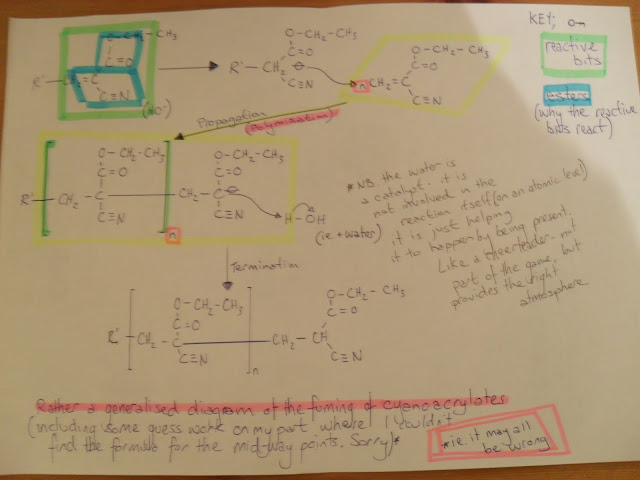 KEY;
reactive bits
esters
(why the reactive
bits react)
O-CH₂-CH₃
C=O
C≡N
R'
CH₂=C
O-CH₂-CH₃
C=O
R'-CH₂-C⊖
C≡N
n
O-CH₂-CH₃
C=O
CH₂=C
C≡N
Propagation
(Polymerisation)
O-CH₂-CH₃
C=O
R'-CH₂-C
C≡N
n
O-CH₂-CH₃
C=O
CH₂-C⊖
C≡N
H-OH
(ie + water)
*NB. the water is
a catalyst. it is
not involved in the
reaction itself (on an atomic level)
it is just helping
it to happen by being present.
Like a cheerleader - not
part of the game, but
provides the right
atmosphere
Termination
O-CH₂-CH₃
C=O
R'-CH₂-C
C≡N
n
O-CH₂-CH₃
C=O
CH₂-CH
C≡N
Rather a generalised diagram of the fuming of cyanoacrylates
(including some guess work on my part where I couldn't
find the formula for the mid-way points. Sorry)*
*ie. it may all
be wrong